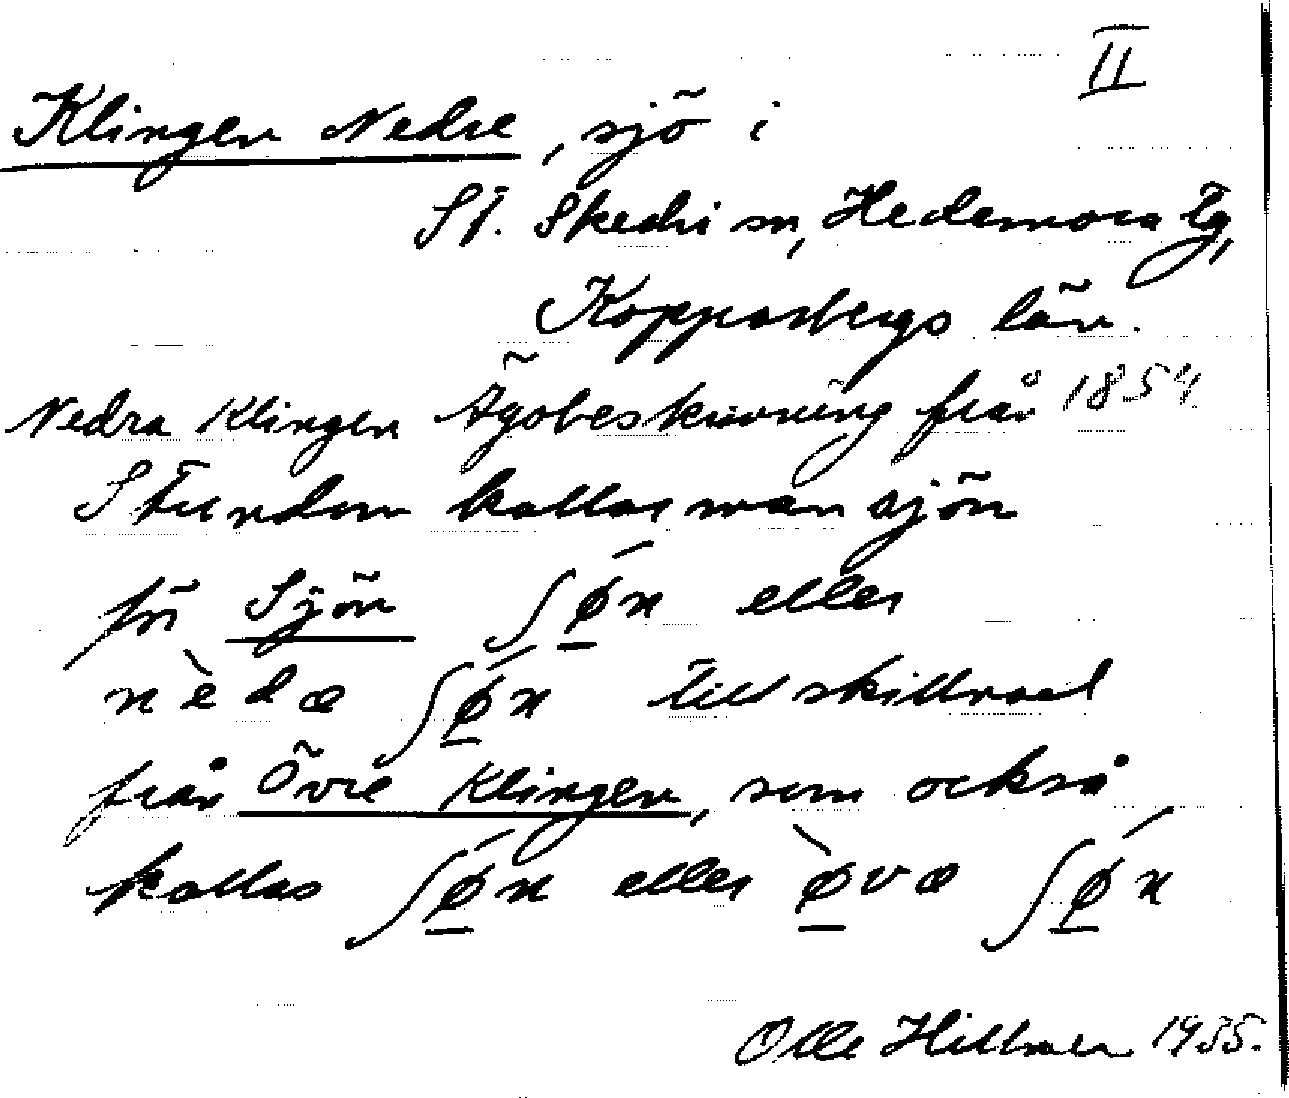 II
Klingen Nedre, sjö i
St. Skedvi sn, Hedemora tg,
Kopparbergs län.
Nedra Klingen Ägobeskrivning från 1854
Stundom kallar man sjön
för Sjön ʃǿ̠n eller
nèdæ ʃǿ̠n till skillnad
från Övre Klingen, som också
kallas ʃǿ̠n eller ø̠̀væ ʃǿ̠n
Olle Hillman 1935.